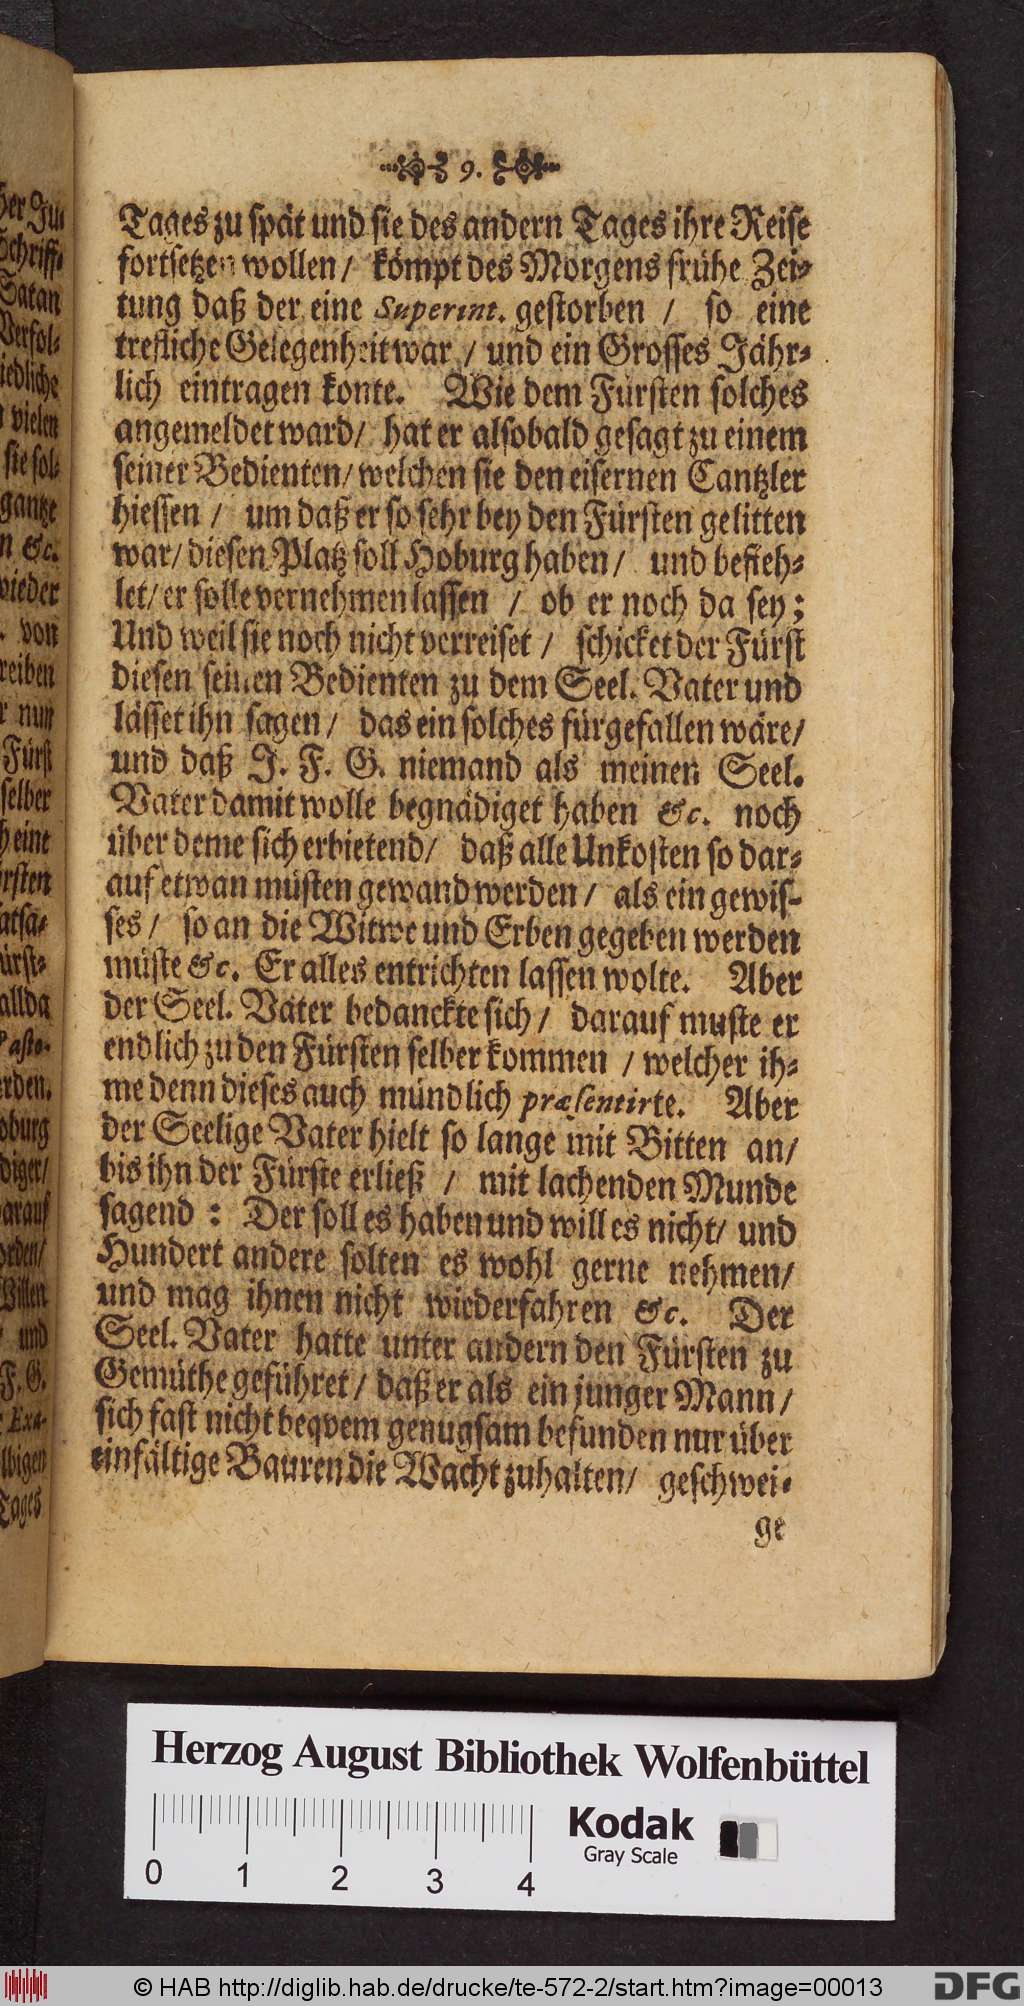 9.
Tages zu spät und sie des andern Tages ihre Reise
fortsetzen wollen / kömpt des Morgens frühe Zei-
tung daß der eine Superint. gestorben / so eine
trefliche Gelegenheit war / und ein Grosses Jähr-
lich eintragen konte. Wie dem Fürsten solches
angemeldet ward / hat er alsobald gesagt zu einem
seiner Bedienten / welchen sie den eisernen Cantzler
hiessen / um daß er so sehr bey den Fürsten gelitten
war / diesen Platz soll Hoburg haben / und befieh-
let / er solle vernehmen lassen / ob er noch da sey;
Und weil sie noch nicht verreiset / schicket der Fürst
diesen seinen Bedienten zu dem Seel. Vater und
lässet ihn sagen / das ein solches fürgefallen wäre /
und daß J. F. G. niemand als meinen Seel.
Vater damit wolle begnädiget haben &c. noch
über deme sich erbietend / daß alle Unkosten so dar-
auf etwan müsten gewand werden / als ein gewis-
ses / so an die Witwe und Erben gegeben werden
müste &c. Er alles entrichten lassen wolte. Aber
der Seel. Vater bedanckte sich / darauf muste er
endlich zu den Fürsten selber kommen / welcher ih-
me denn dieses auch mündlich præsentirte. Aber
der Seelige Vater hielt so lange mit Bitten an /
bis ihn der Fürste erließ / mit lachenden Munde
sagend : Der soll es haben und will es nicht / und
Hundert andere solten es wohl gerne nehmen /
und mag ihnen nicht wiederfahren &c. Der
Seel. Vater hatte unter andern den Fürsten zu
Gemüthe geführet / daß er als ein junger Mann /
sich fast nicht beqvem genugsam befunden nur über
einfältige Bauren die Wacht zuhalten / geschwei-
ge
Herzog August Bibliothek Wolfenbüttel
Kodak
Gray Scale
0 1 2 3 4
© HAB http://diglib.hab.de/drucke/te-572-2/start.htm?image=00013
DFG